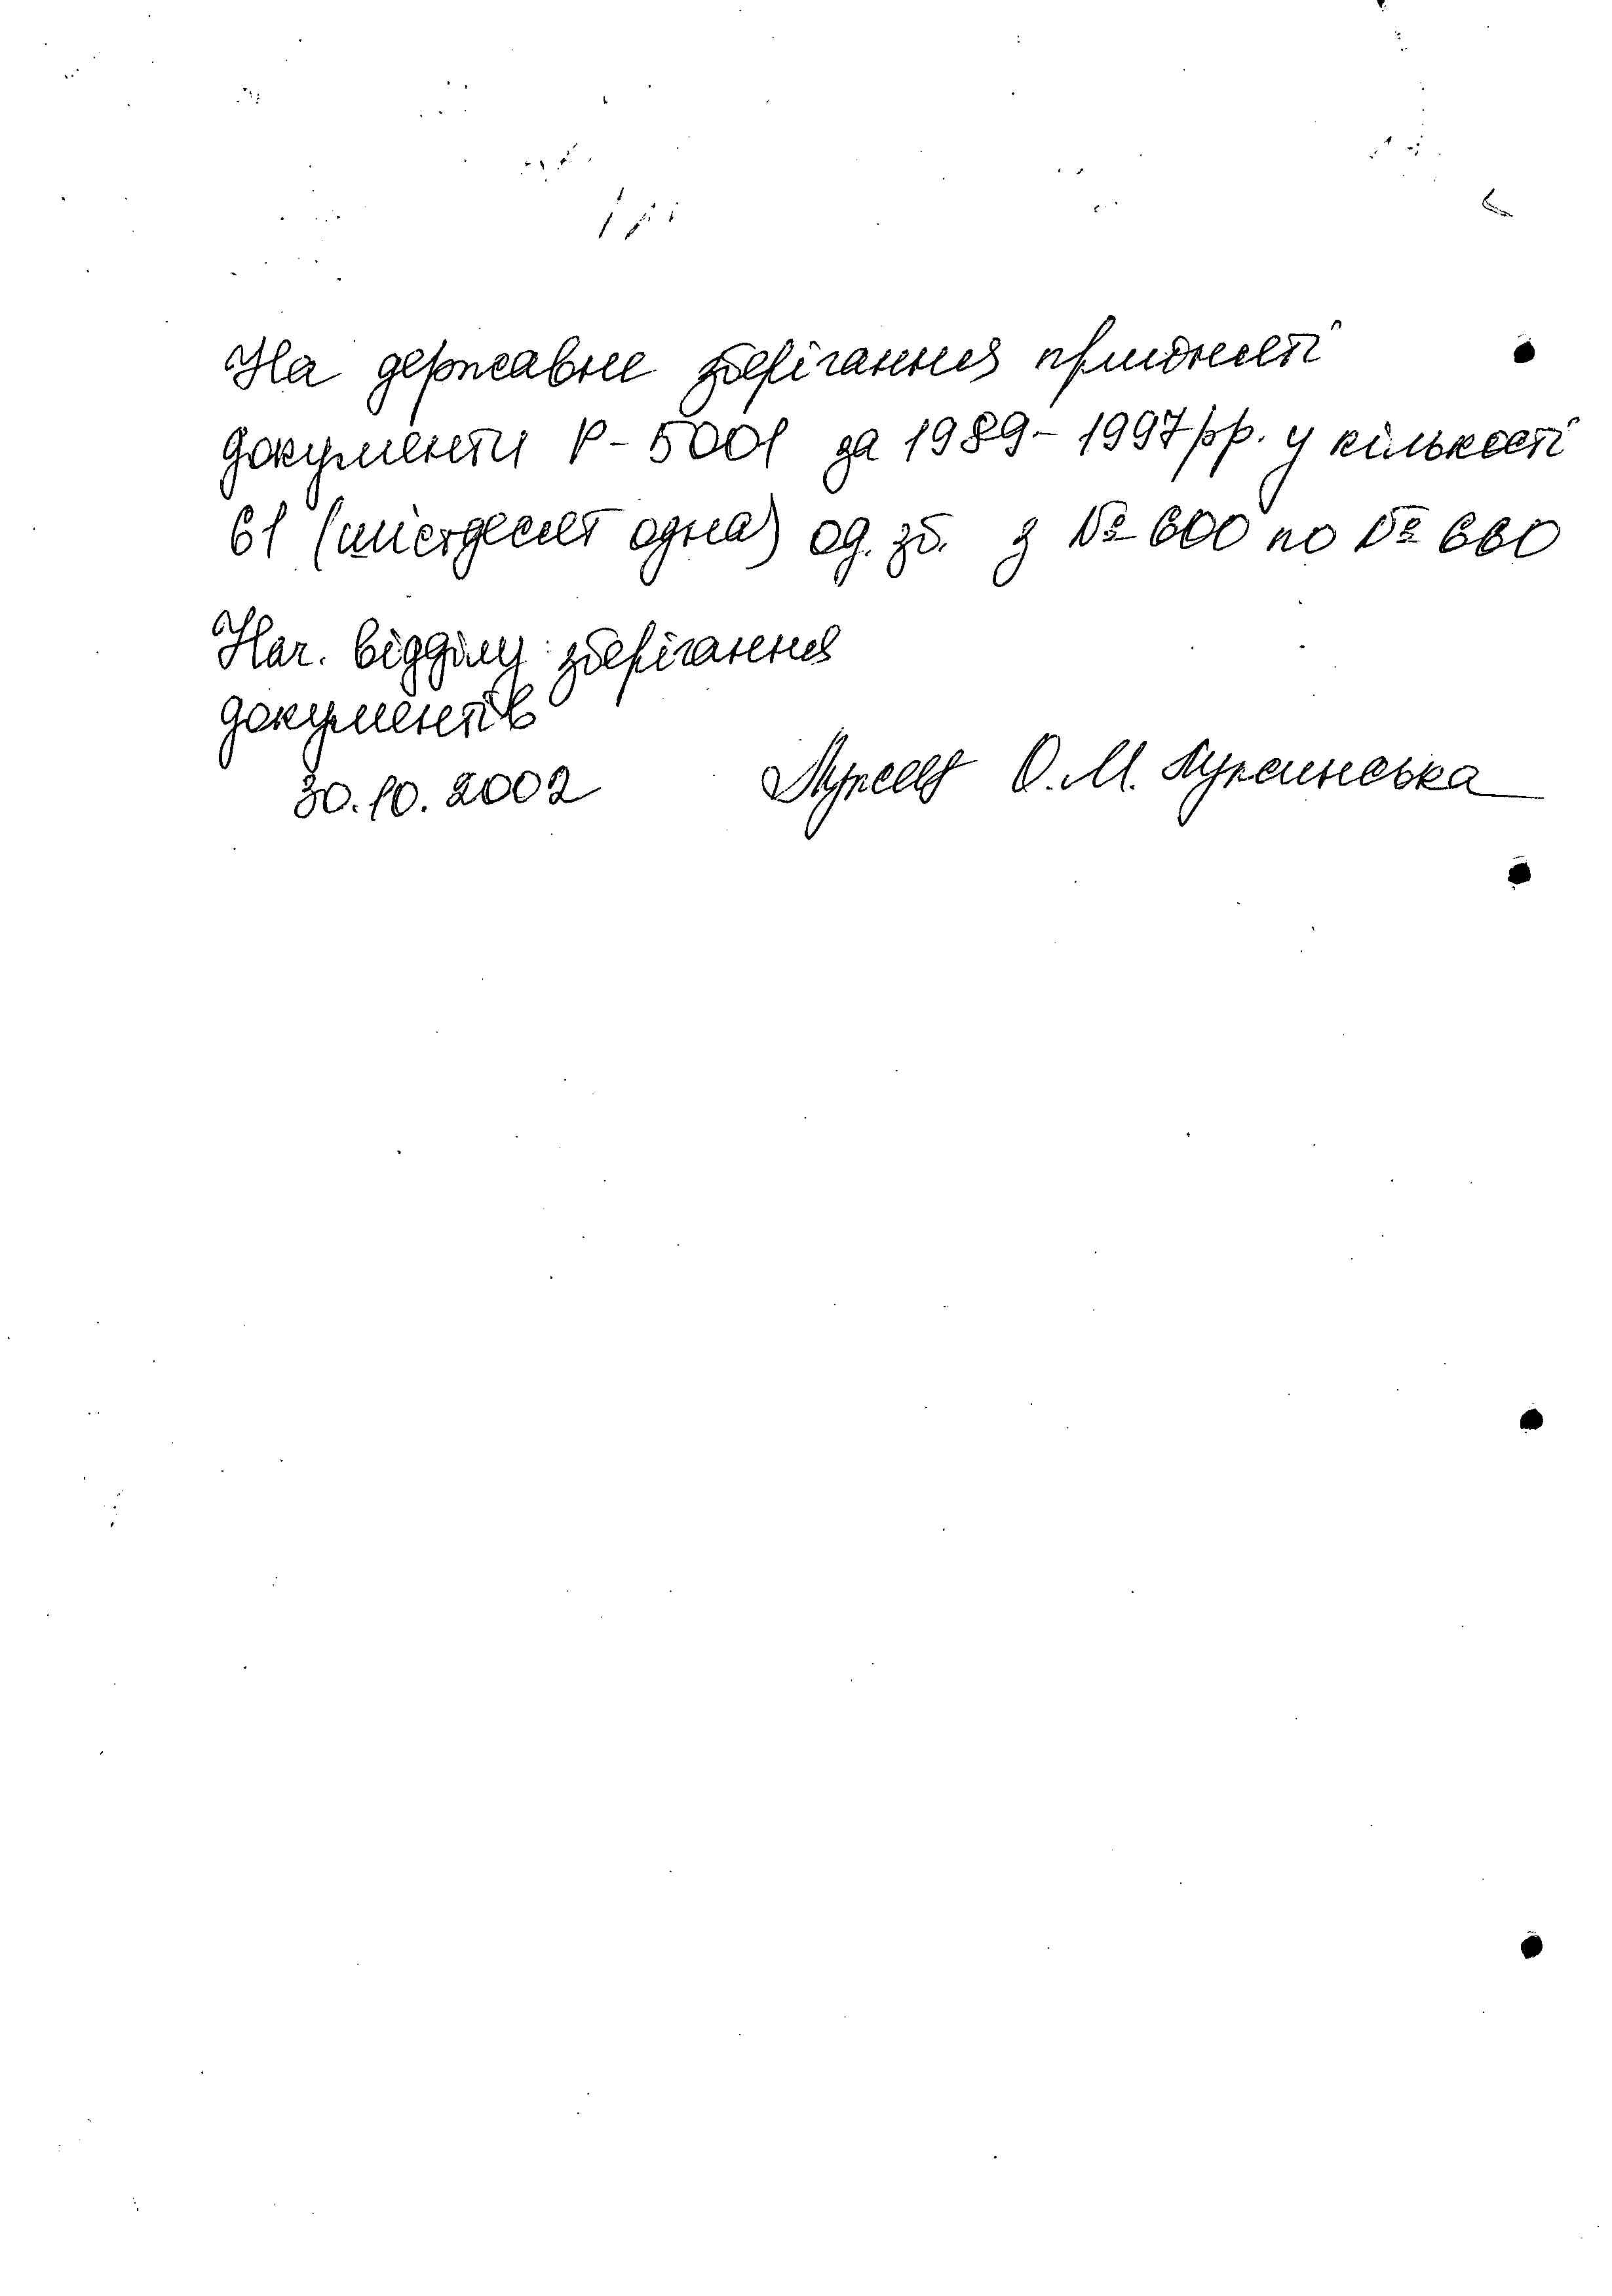 На державне зберігання прийняті
документи Р-5001 за 1989-1997рр. у кількості
61 (шістдесят одна) од. зб. з № 600 по № 660
Нач. відділу зберігання
документів
30.10.2002 О.М.